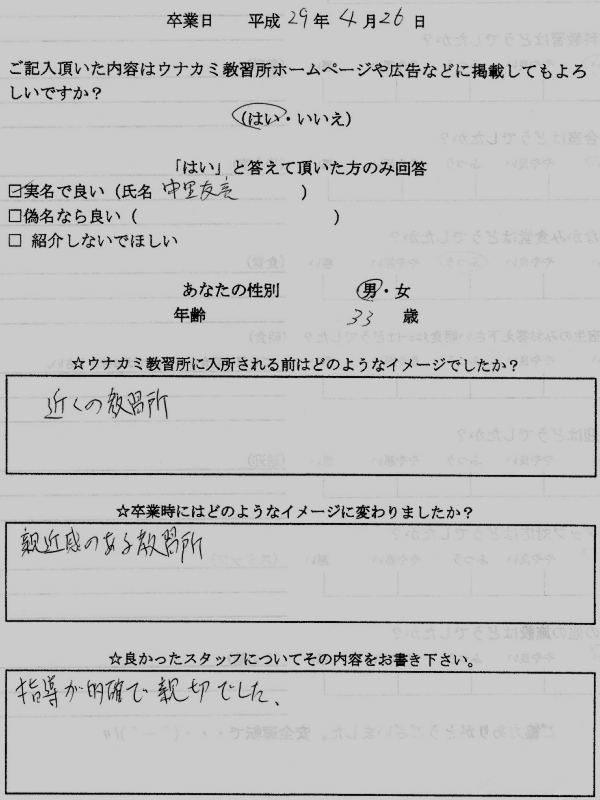 卒業日 平成29年4月26日
ご記入頂いた内容はウナカミ教習所ホームページや広告などに掲載してもよろ
しいですか？
(はい・いいえ)
「はい」と答えて頂いた方のみ回答
☑実名で良い（氏名 中里友亮 ）
□偽名なら良い（ ）
□ 紹介しないでほしい
あなたの性別 男・女
年齢 33 歳
☆ウナカミ教習所に入所される前はどのようなイメージでしたか？
近くの教習所
☆卒業時にはどのようなイメージに変わりましたか？
親近感のある教習所
☆良かったスタッフについてその内容をお書き下さい。
指導が的確で親切でした、